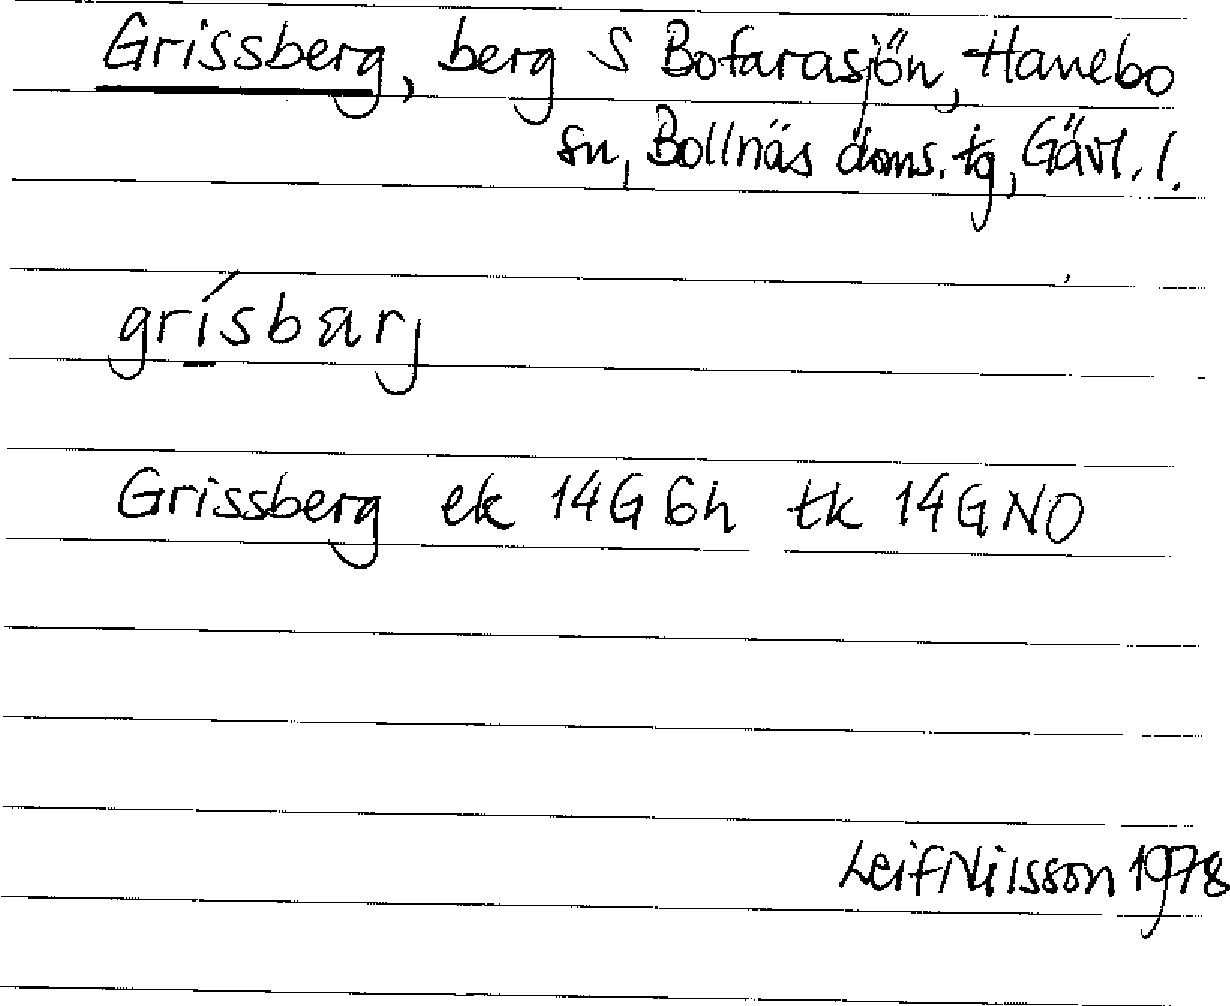 Grissberg, berg S Bofarasjön, Hanebo
sn, Bollnäs doms. tg, Gävl. l.
grísbærj
Grissberg ek 14G 6h tk 14G NO
Leif Nilsson 1978